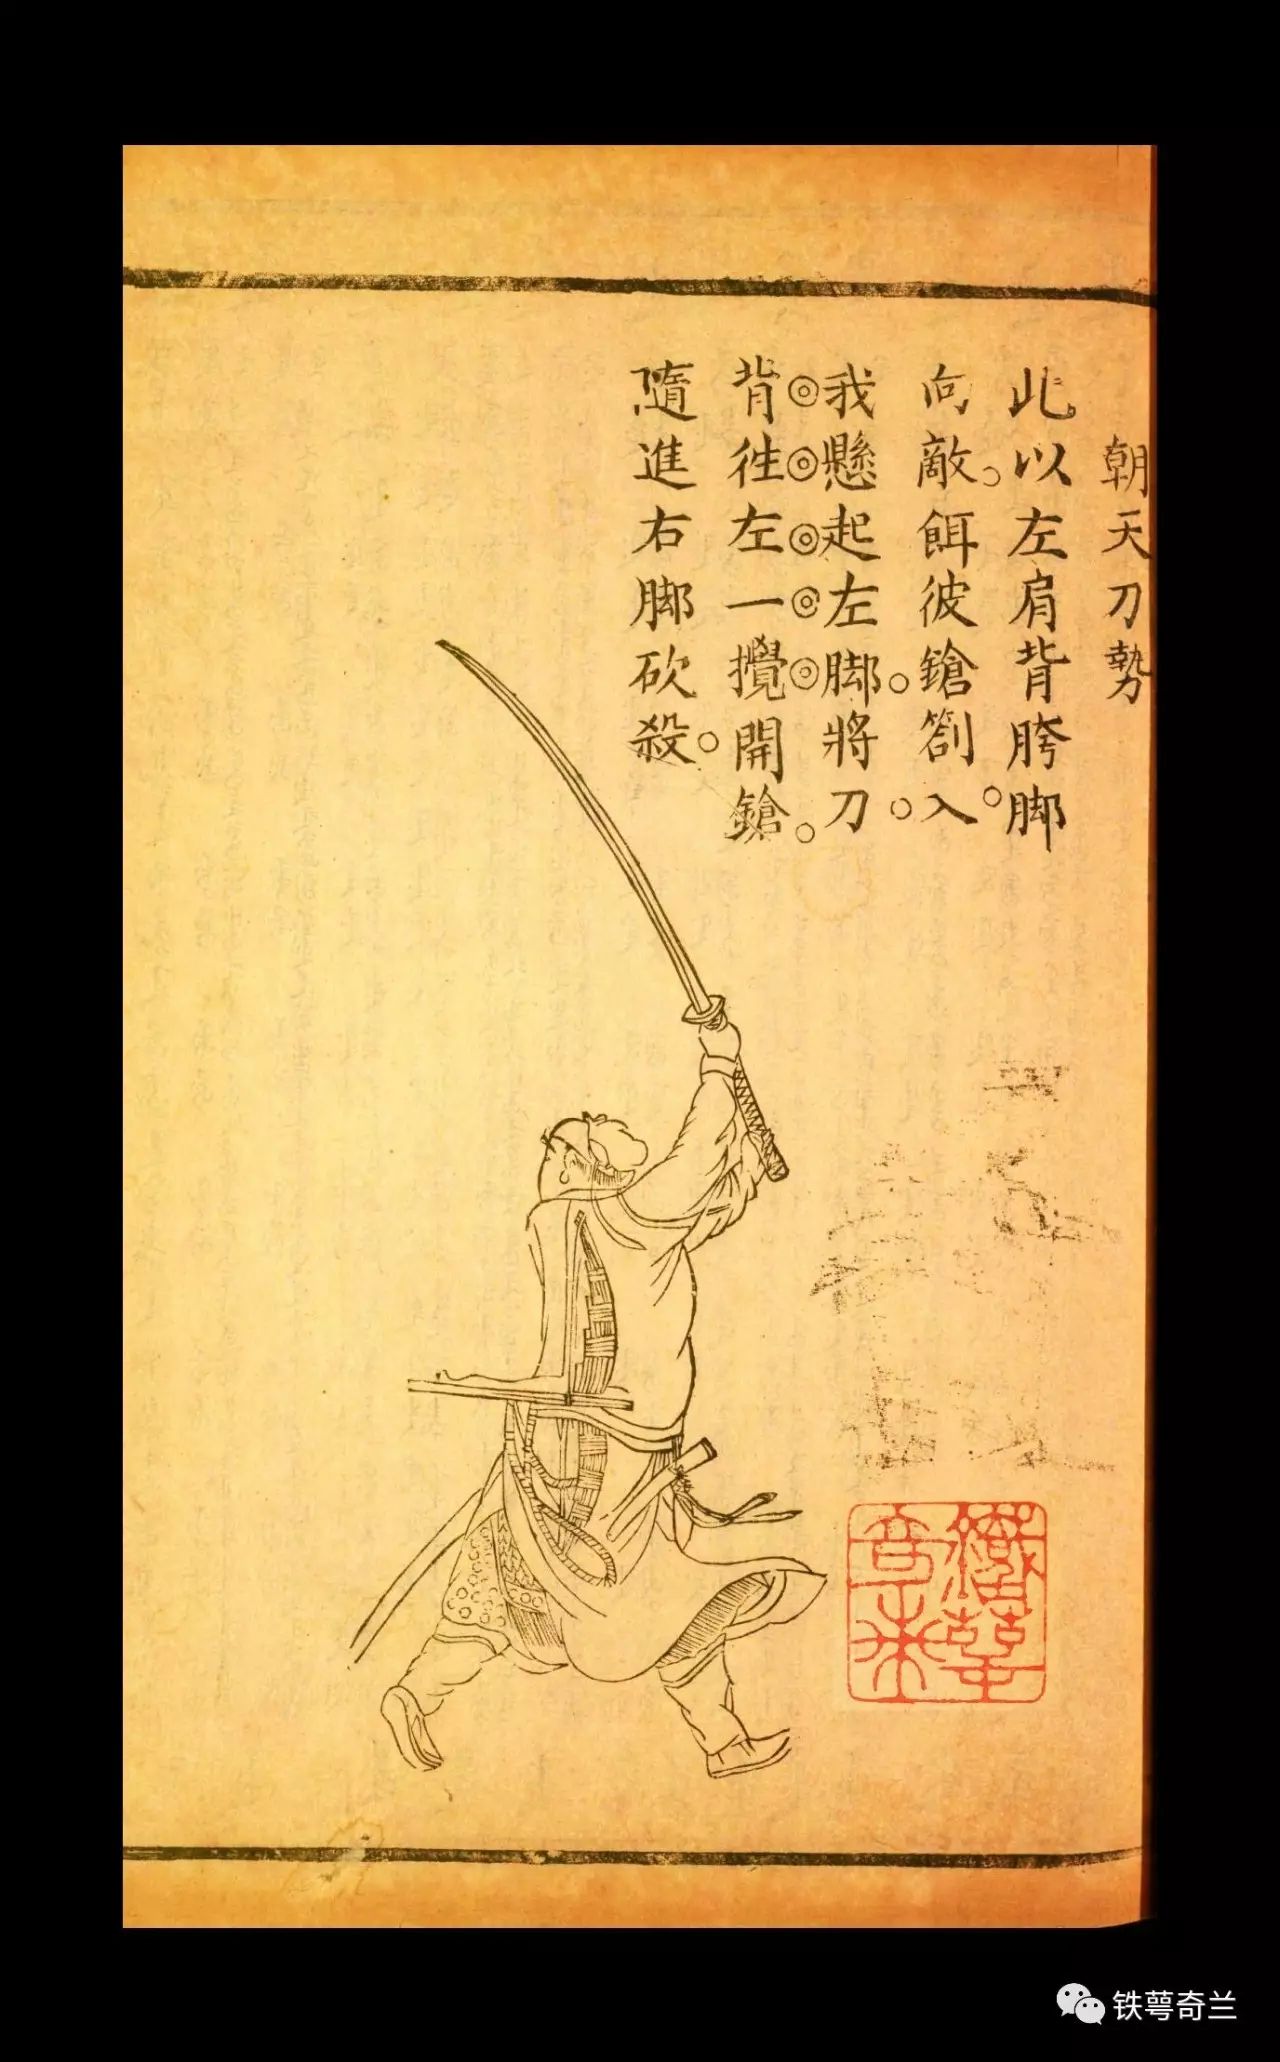 朝天刀勢
此以左肩背胯脚。
向敵。餌彼鎗劄入。
我懸起左脚。將刀
背徃左一攪開鎗。
隨進右脚砍殺。
铁萼奇兰